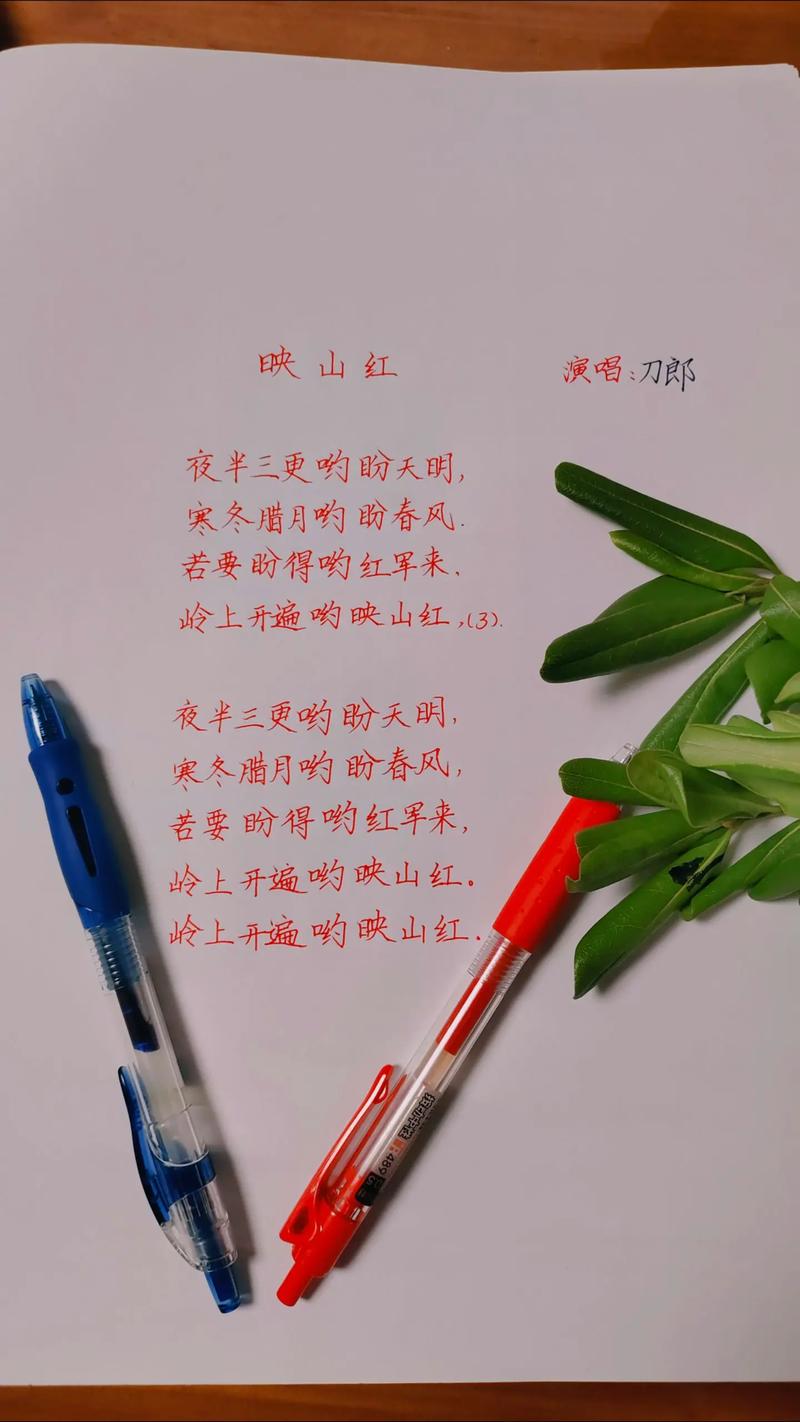 映山红 演唱:刀郎
夜半三更哟盼天明,
寒冬腊月哟盼春风.
若要盼得哟红军来,
岭上开遍哟映山红,(3).
夜半三更哟盼天明,
寒冬腊月哟盼春风,
若要盼得哟红军来,
岭上开遍哟映山红。
岭上开遍哟映山红.
489